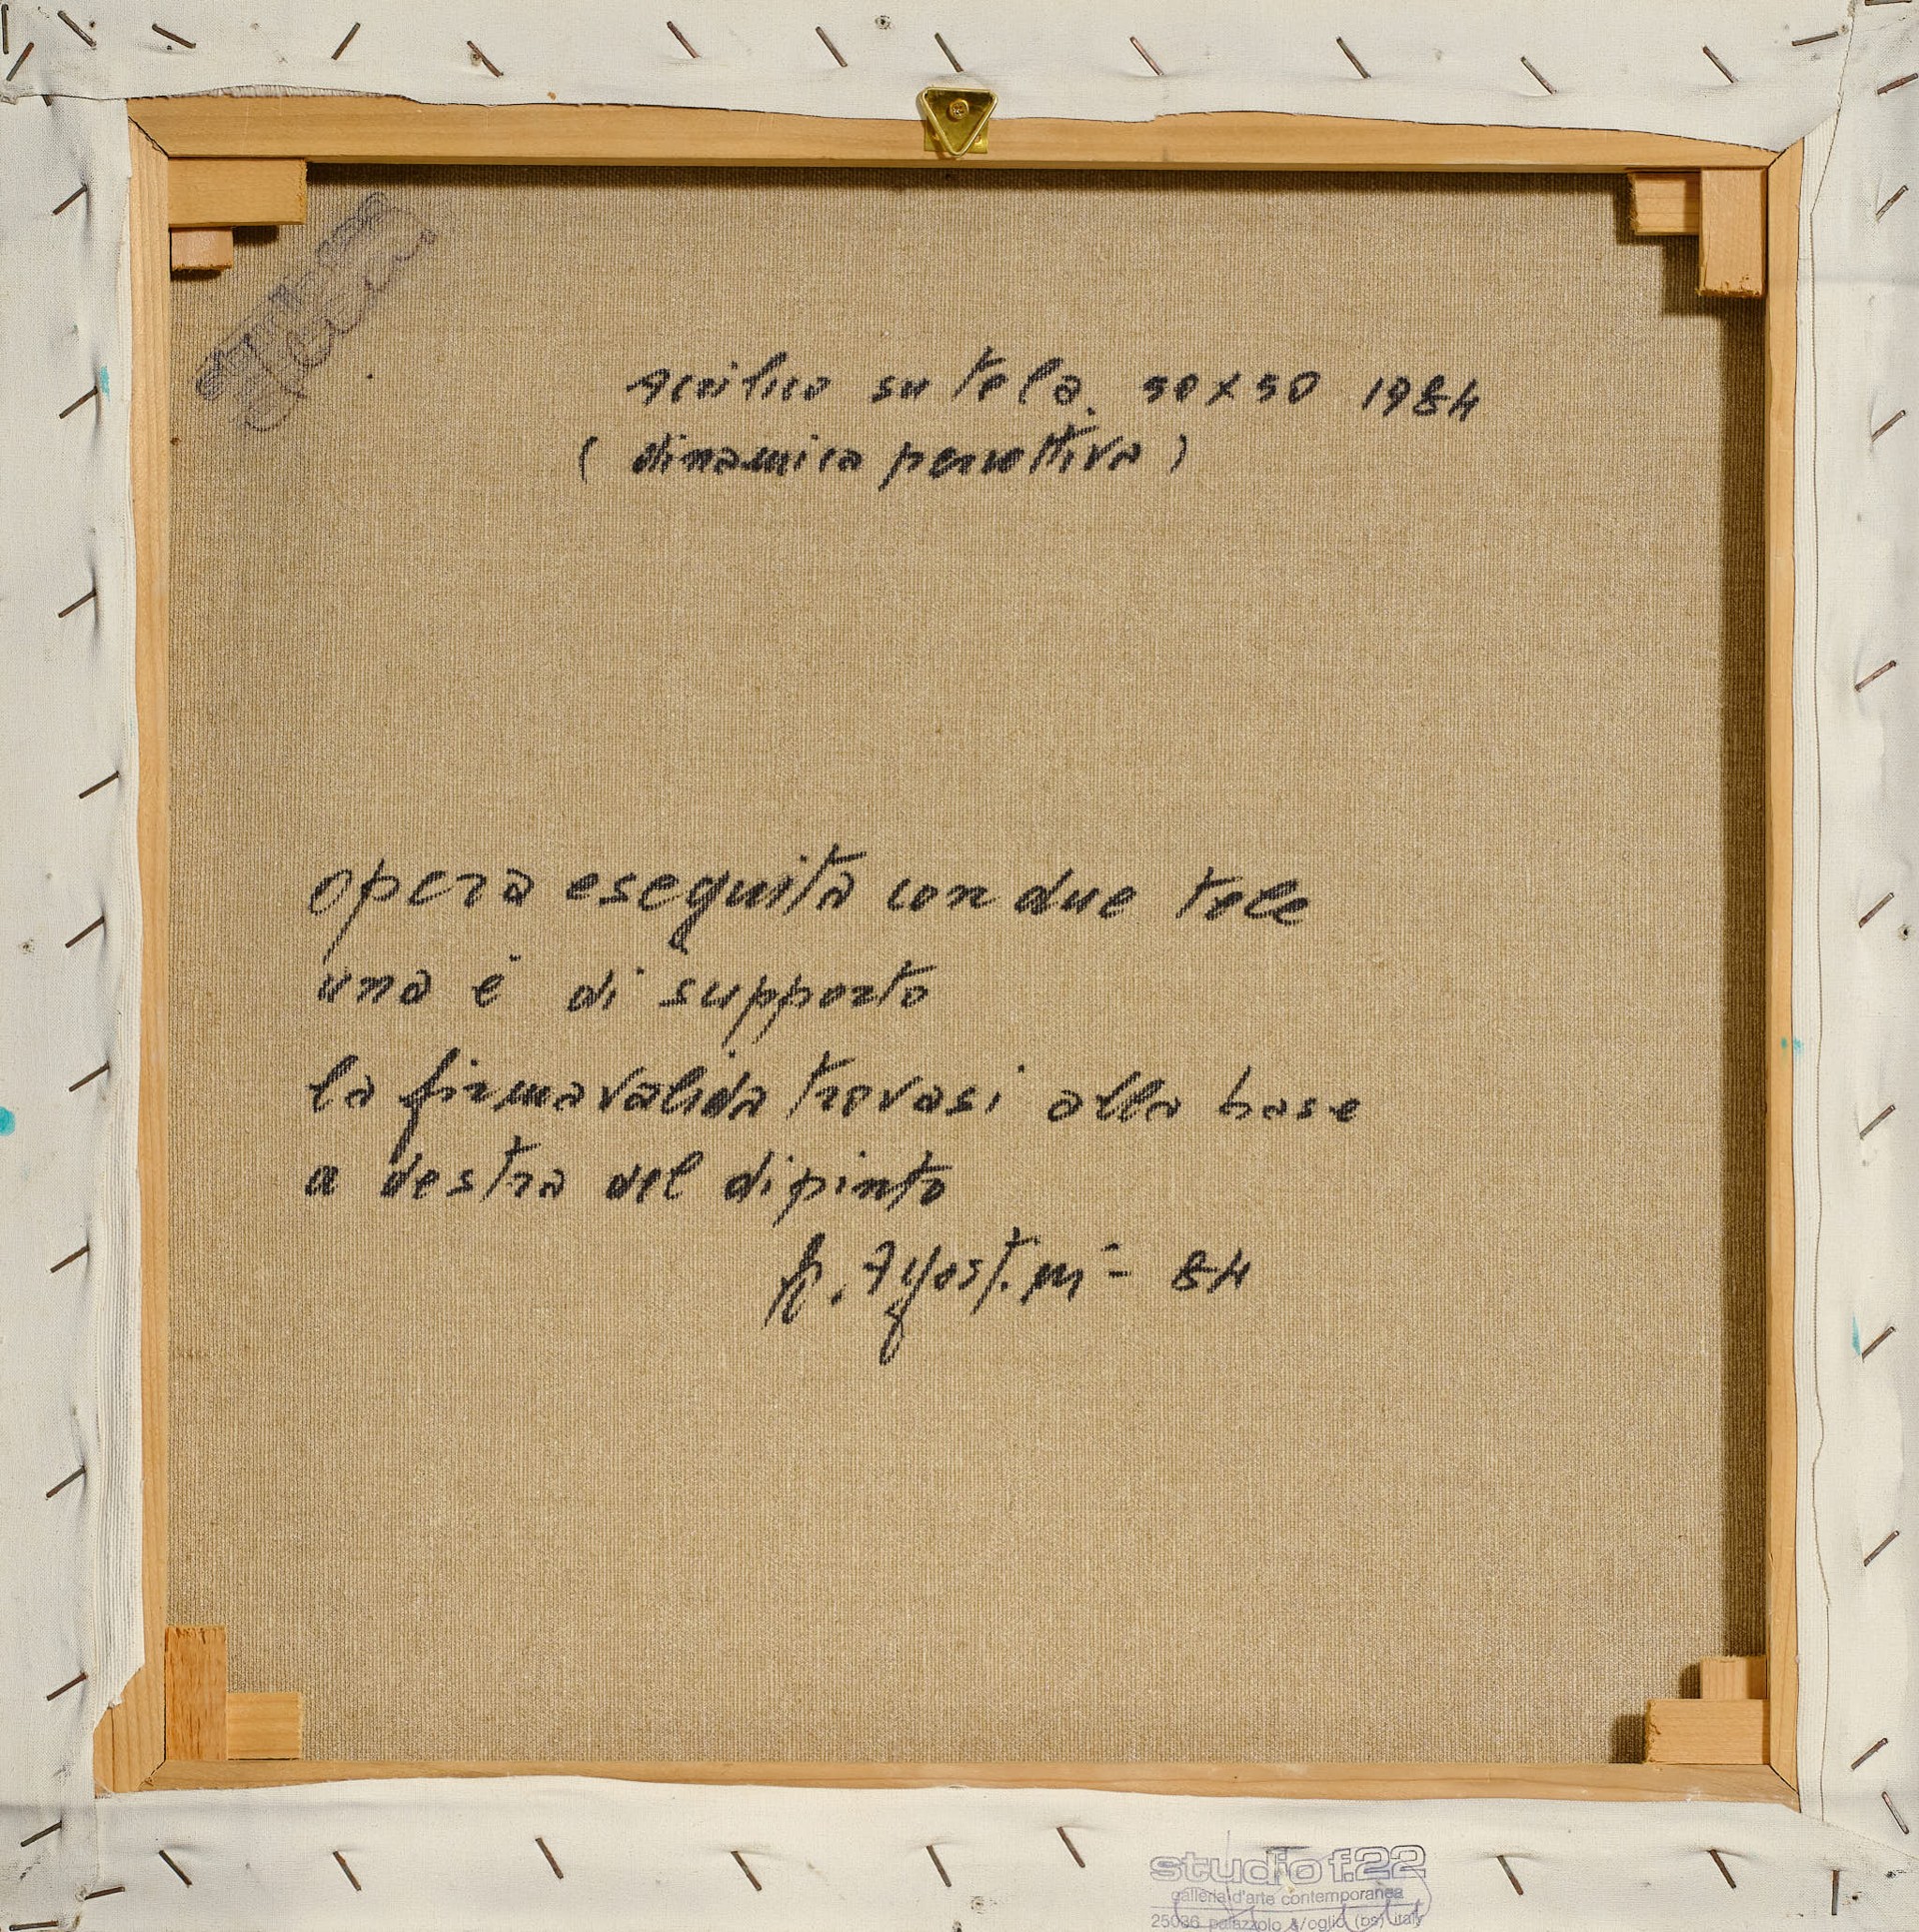 acrilico su tela. 50x50 1984
(dinamica percettiva)
opera eseguita con due tele
una è di supporto
la firma valida trovasi alla base
a destra del dipinto
Agostini - 84
studio f.22
galleria d'arte contemporanea
25036 palazzolo s/oglio (bs) italy